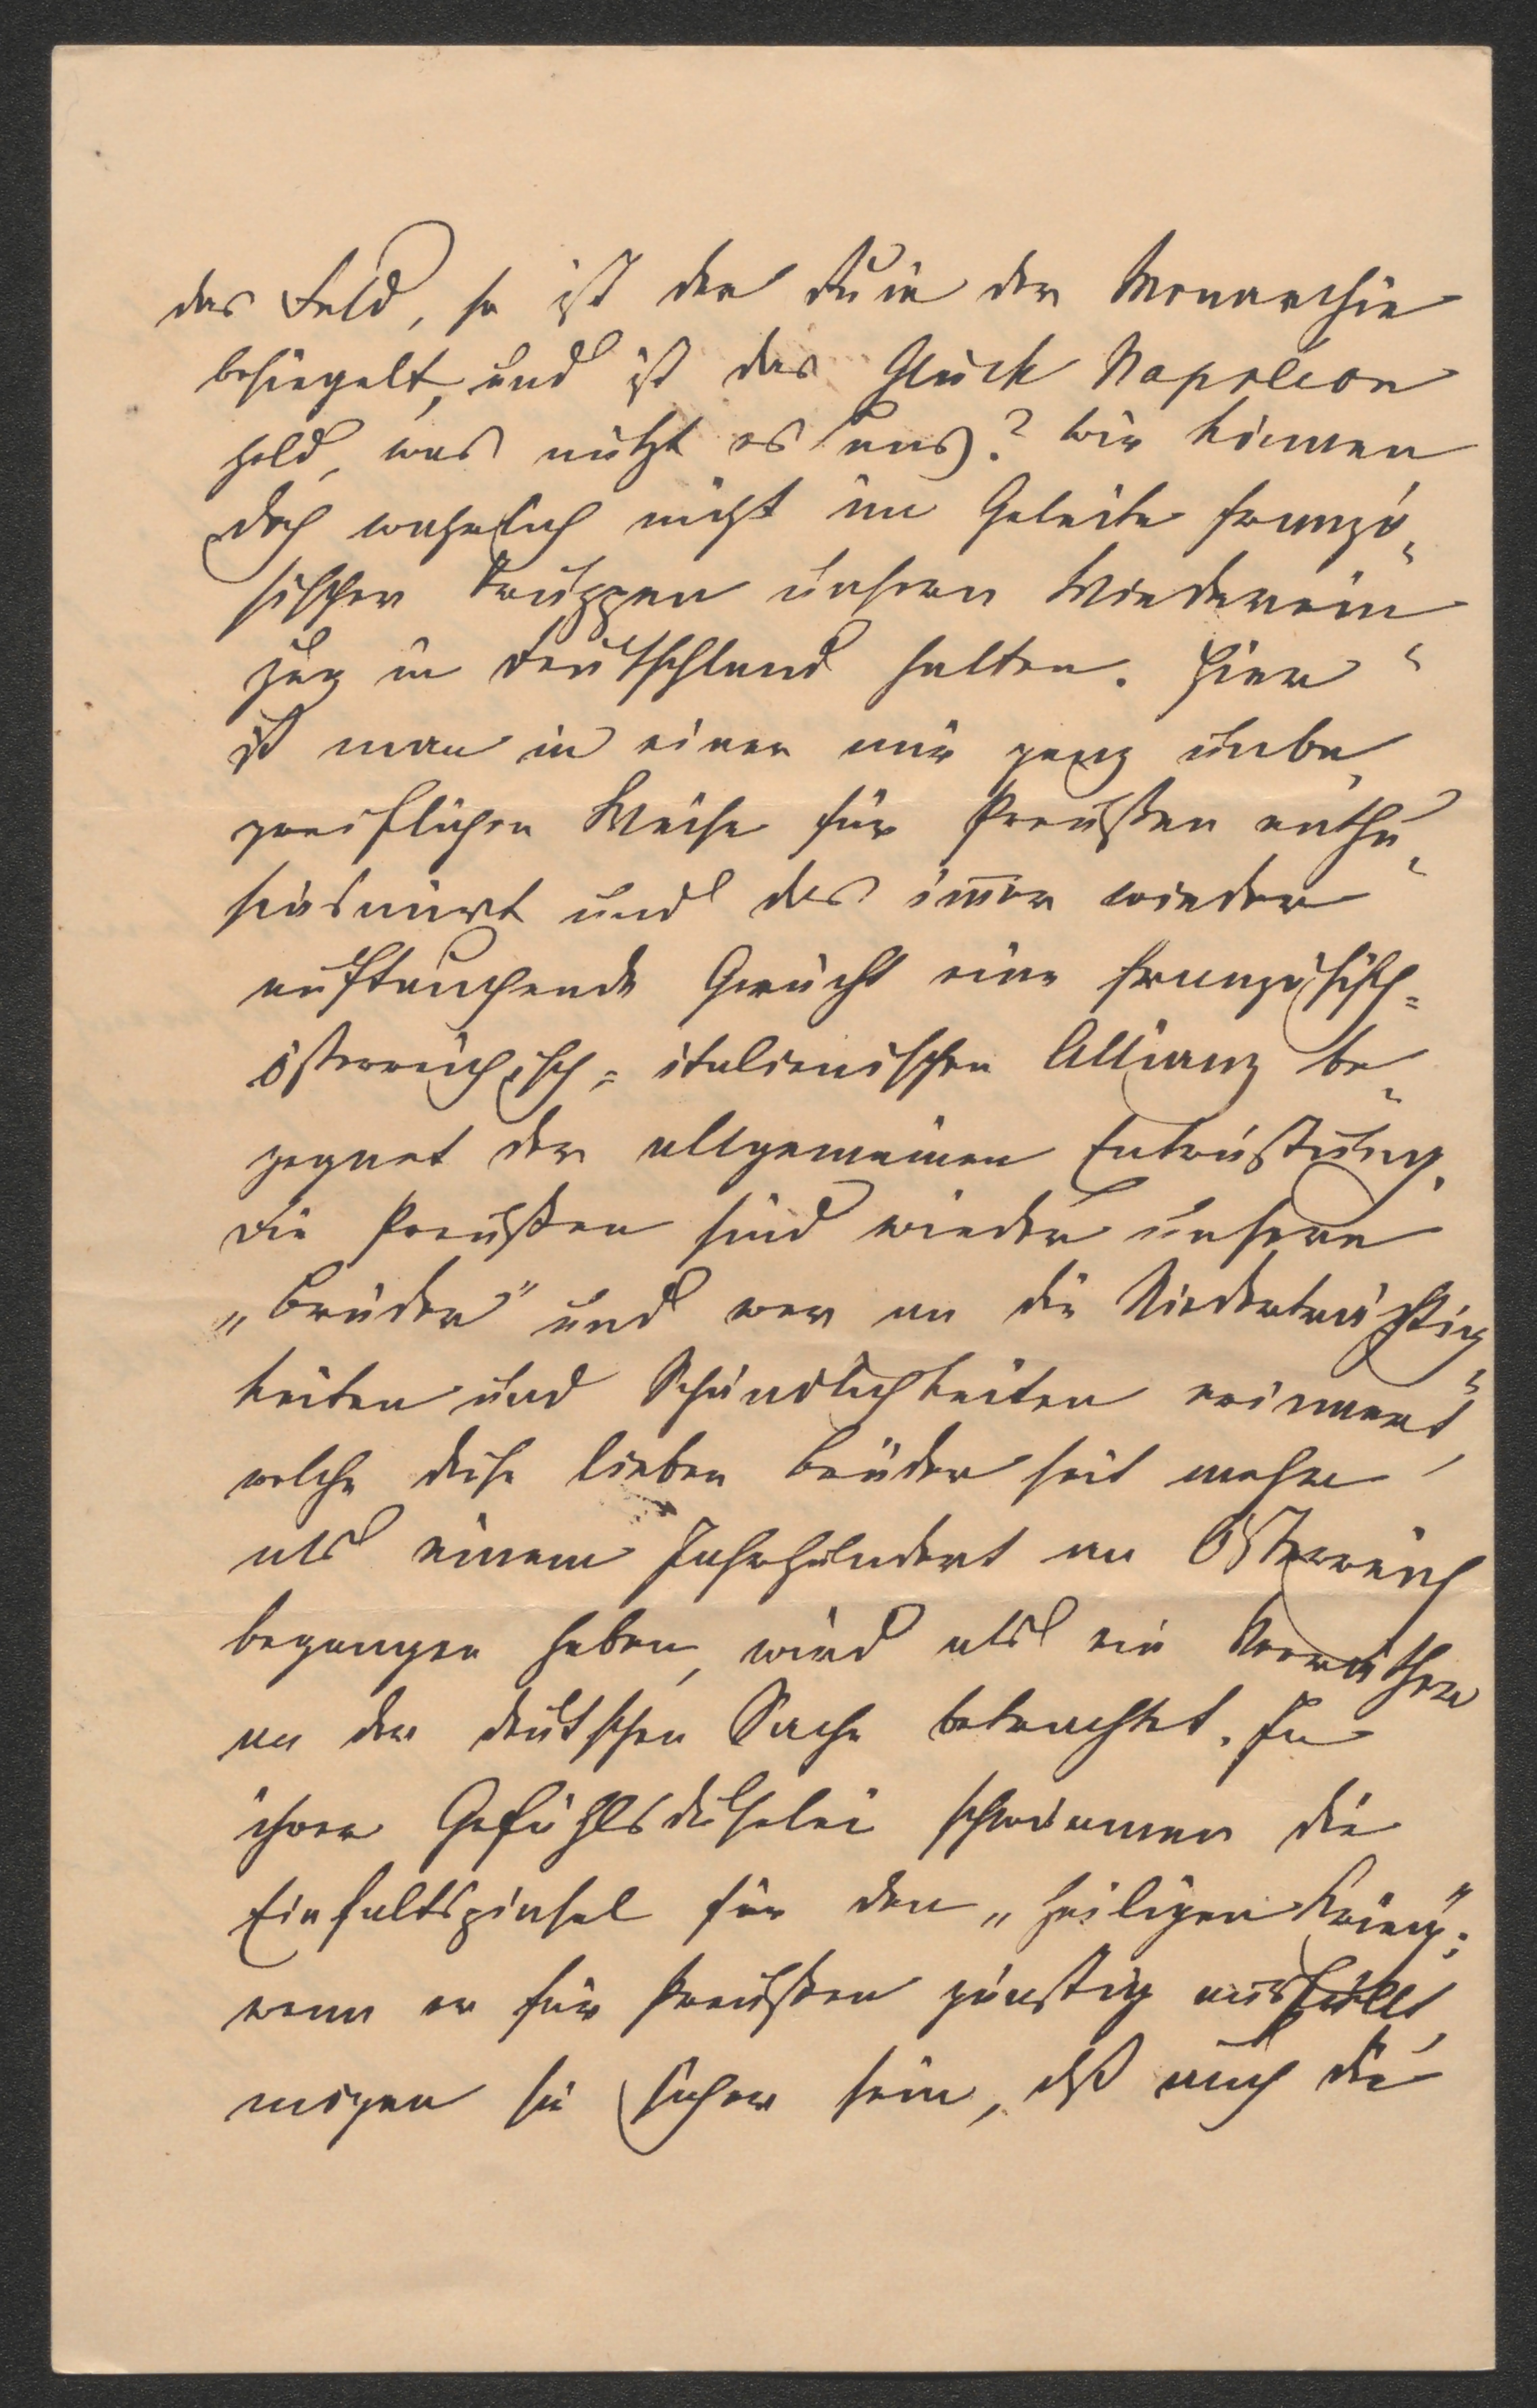 das Feld, so ist der Ruin der Monarchie
besiegelt, und ist das Glück Napoleon
hold, was nützt es uns? Wir können
doch wahrlich nicht im Geleite franzö„
sischer Truppen unsern Wiederein„
zug in Deutschland halten. Hier
ist man in einer mir ganz unbe„
greiflichen Weise für Preußen enthu„
siasmirt und das im̄er wieder
auftauchende Gerücht einer französisch=
österreichisch=italienischen Allianz be„
gegnet der allgemeinen Entrüstung.
Die Preußen sind wieder unsere
„Brüder" und wer an die Niederträchtig„
keiten und Schändlichkeiten erinnert,
welche diese lieben Brüder seit mehr
als einem Jahrhundert an Österreich
begangen haben, wird als ein Verräther
an der deutschen Sache betrachtet. In
ihrer Gefühlsduselei schwärmen die
Einfaltspinsel für den „heiligen Krieg";
wenn er für Preußen günstig ausfällt,
mögen sie sicher sein, dß auch die